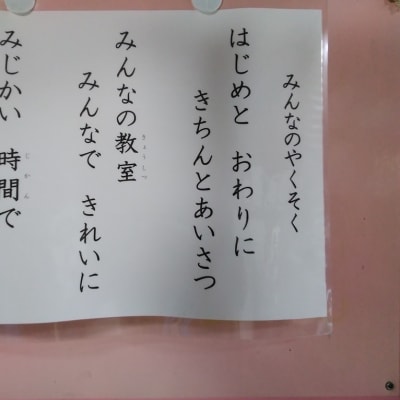 みんなのやくそく
はじめと おわりに
きちんとあいさつ
みんなの教室
きょうしつ
みんなで きれいに
みじかい 時間で
じかん